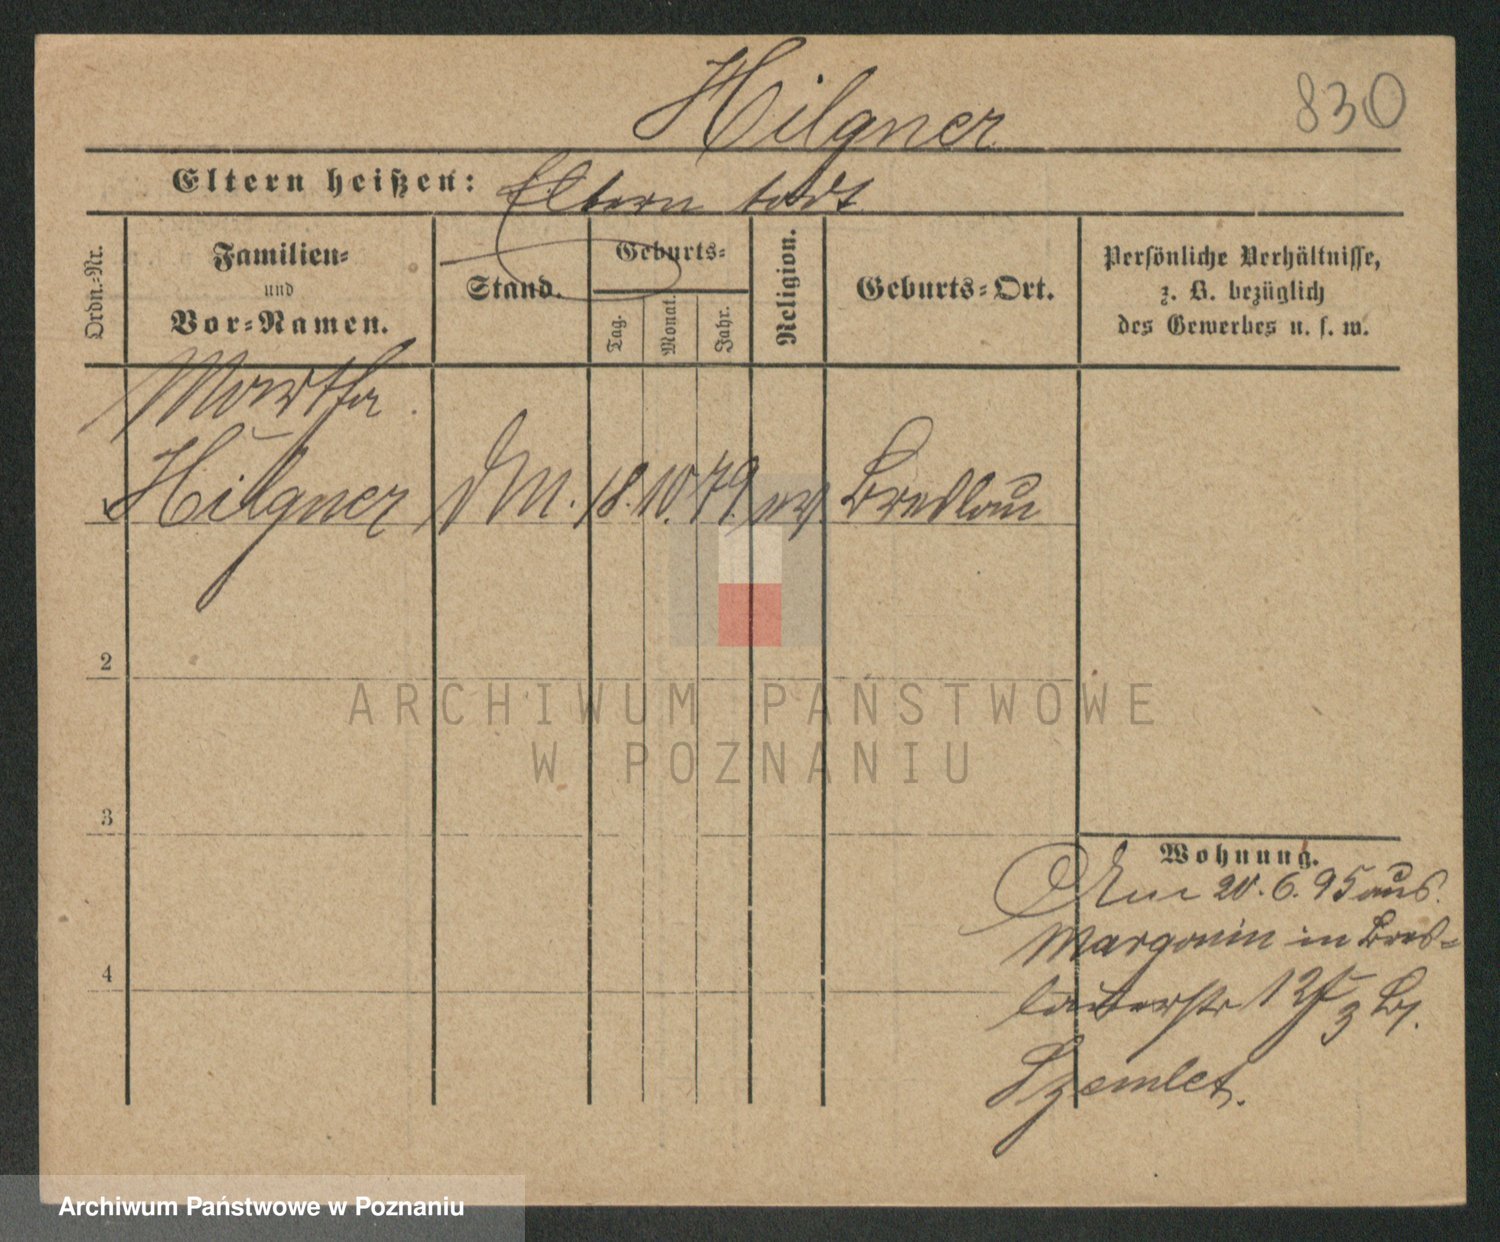 Hilgner
830
Eltern heißen: Eltern todt
Ordn.-Nr.
Familien-
und
Vor-Namen.
Stand.
Geburts-
Tag.
Monat.
Jahr.
Religion.
Geburts-Ort.
Persönliche Verhältnisse,
z. B. bezüglich
des Gewerbes u. s. w.
Martha
Hilgner DM. 18. 10. 79. ev. Breslau
2
3
4
Wohnung.
Am 20. 6. 95 aus
Margonin in Bres-
lauerstr 12 b.
Szemlet.
ARCHIWUM PAŃSTWOWE
W POZNANIU
Archiwum Państwowe w Poznaniu